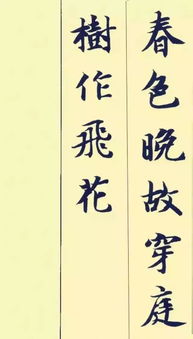 春色晚故穿庭
樹作飛花